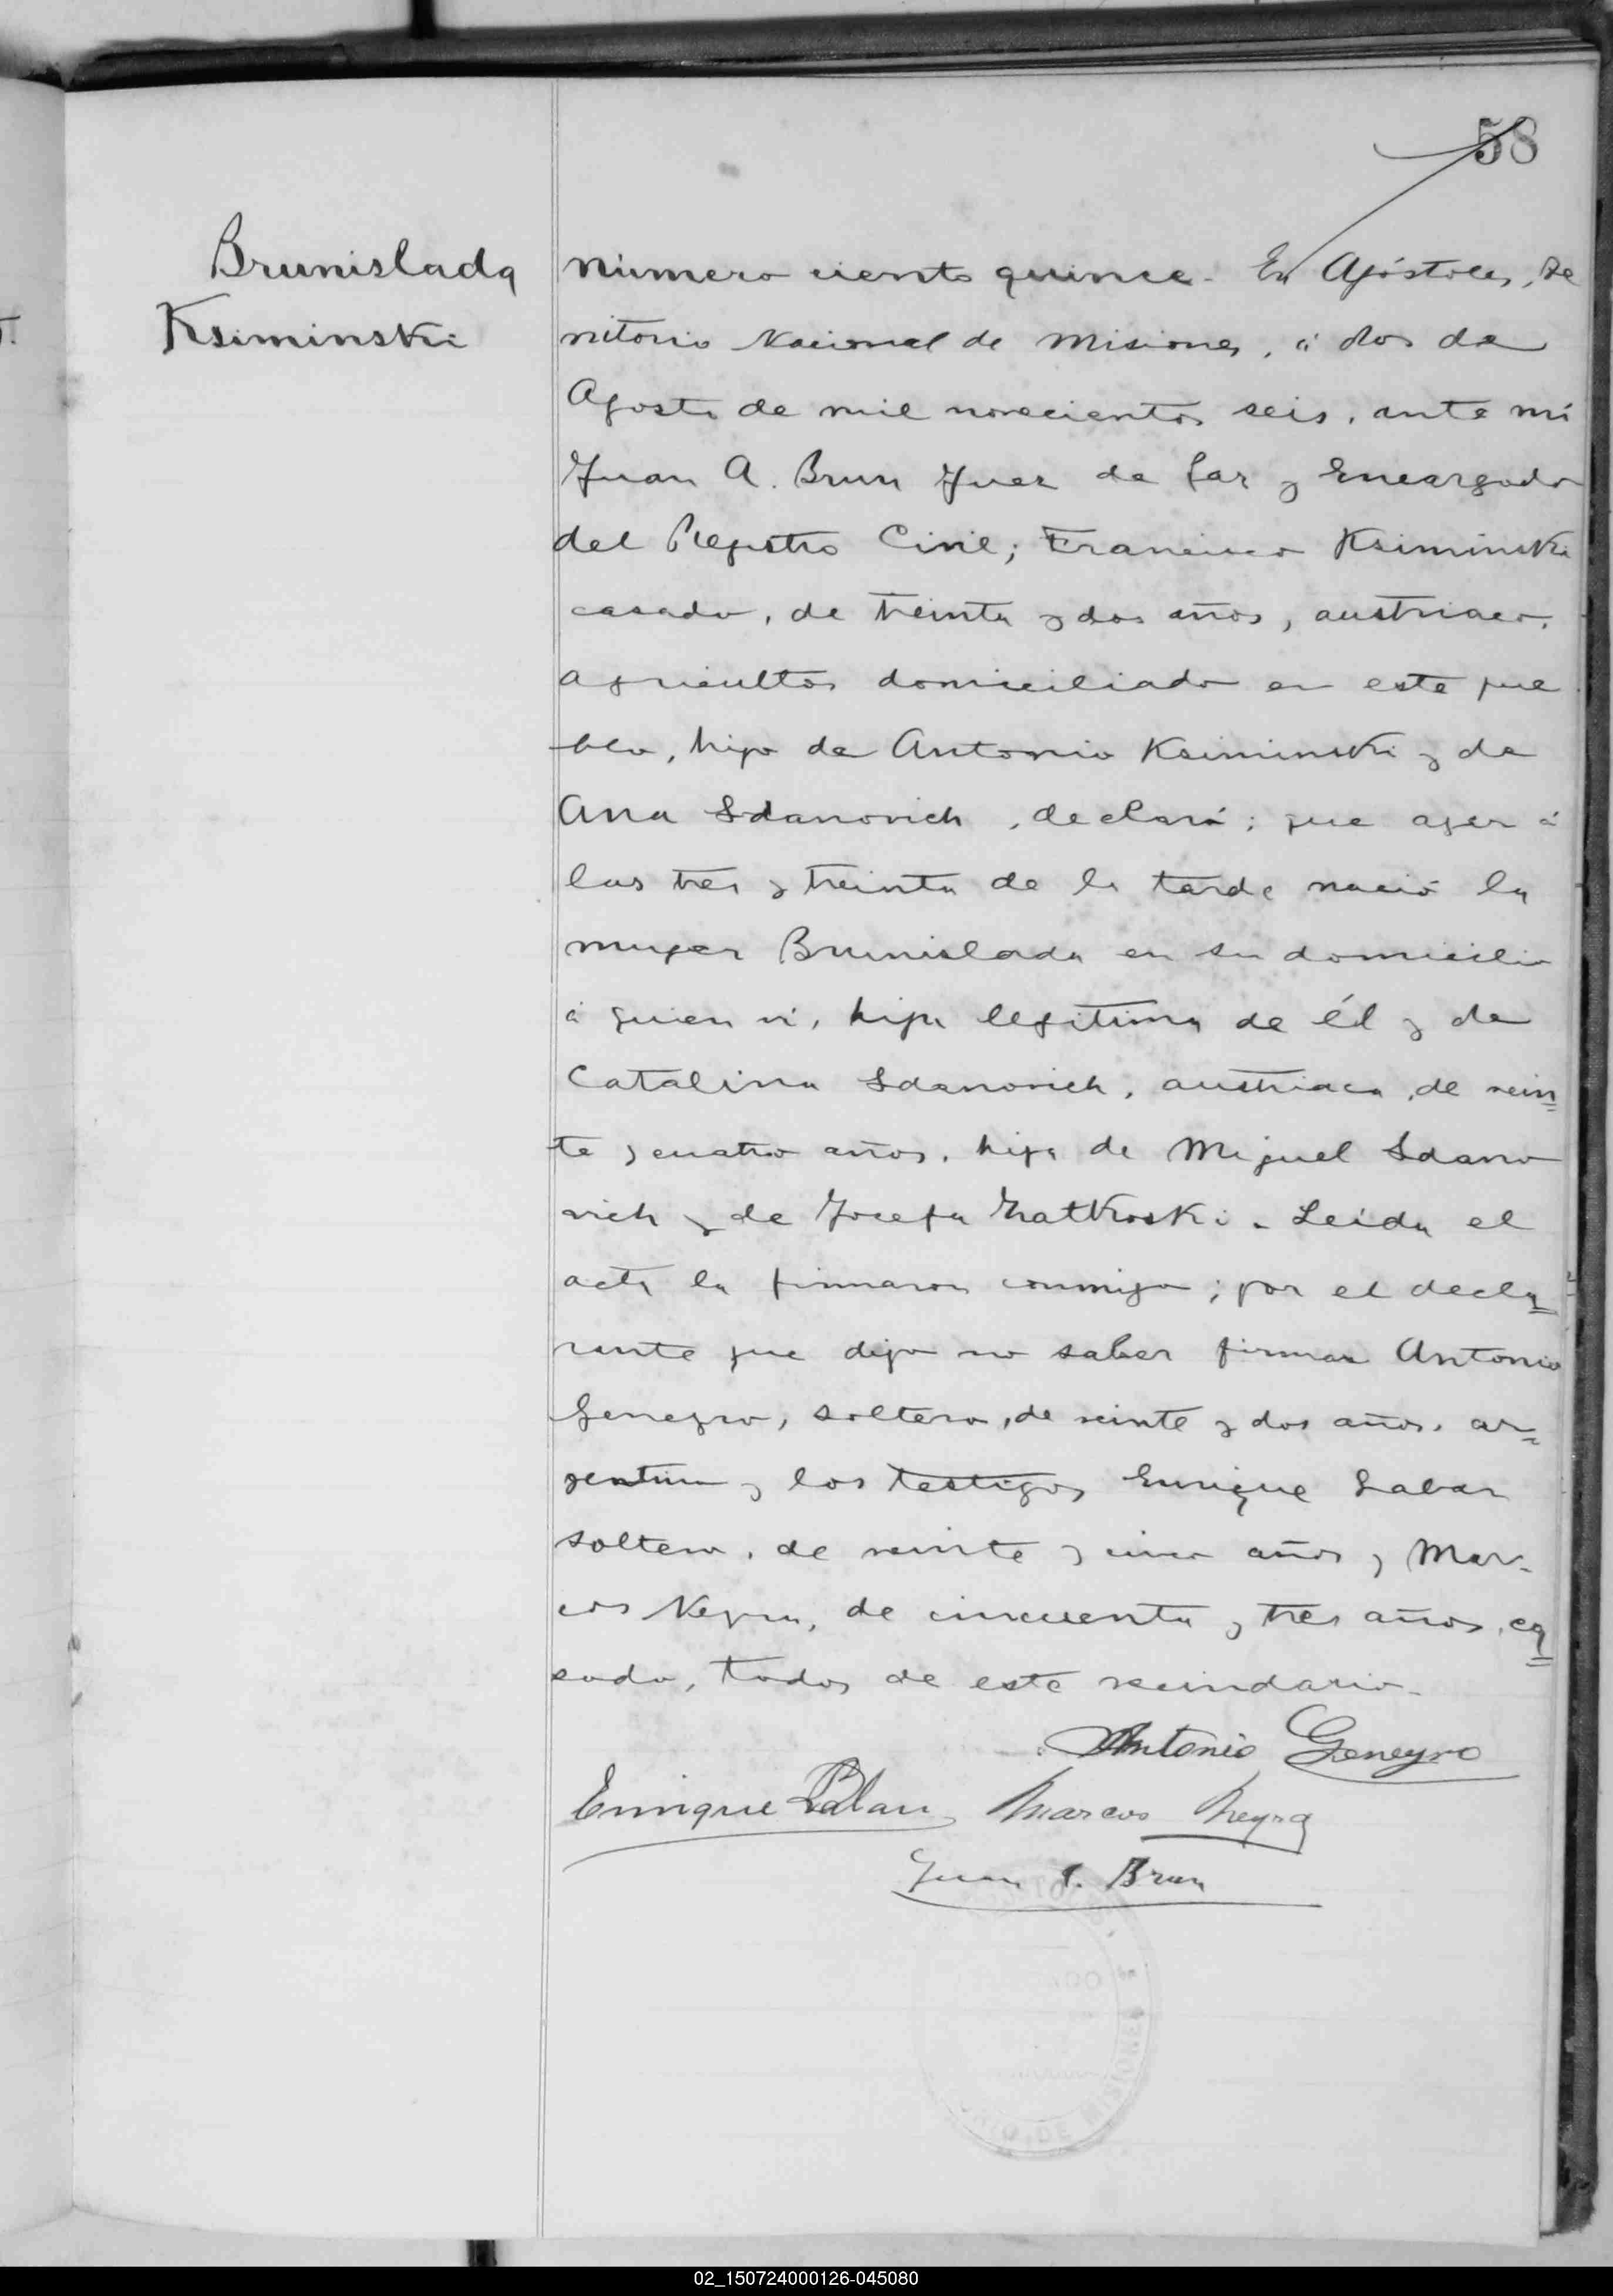 58
Brunislada
Ksiminski
Número ciento quince. En Apóstoles, Te
rritorio Nacional de Misiones, á dos de
Agosto de mil novecientos seis, ante mí
Juan A. Brun Juez de Paz y Encargado
del Registro Civil; Francisco Ksiminski
casado, de treinta y dos años, austriaco,
agricultor domiciliado en este pue
blo, hijo de Antonio Ksiminski y de
Ana Sdanovich, declaró; que ayer á
las tres y treinta de la tarde nació la
mujer Brunislada en su domicilio
á quien ví, hija legítima de él y de
Catalina Sdanovich, austriaca, de vein=
te y cuatro años, hija de Miguel Sdano
vich y de Josefa . Leida el
acta la firmaron conmigo; por el decla=
rante que dijo no saber firmar Antonio
Geneyro, soltero, de veinte y dos años, ar=
gentino y los testigos Enrique
soltero, de veinte y cinco años y Mar-
cos Neyra, de cincuenta y tres años, ca=
sado, todos de este vecindario.
Antonio Geneyro
Enrique Marcos Neyra
Juan A. Brun
DE MISIONES
02_150724000126-045080